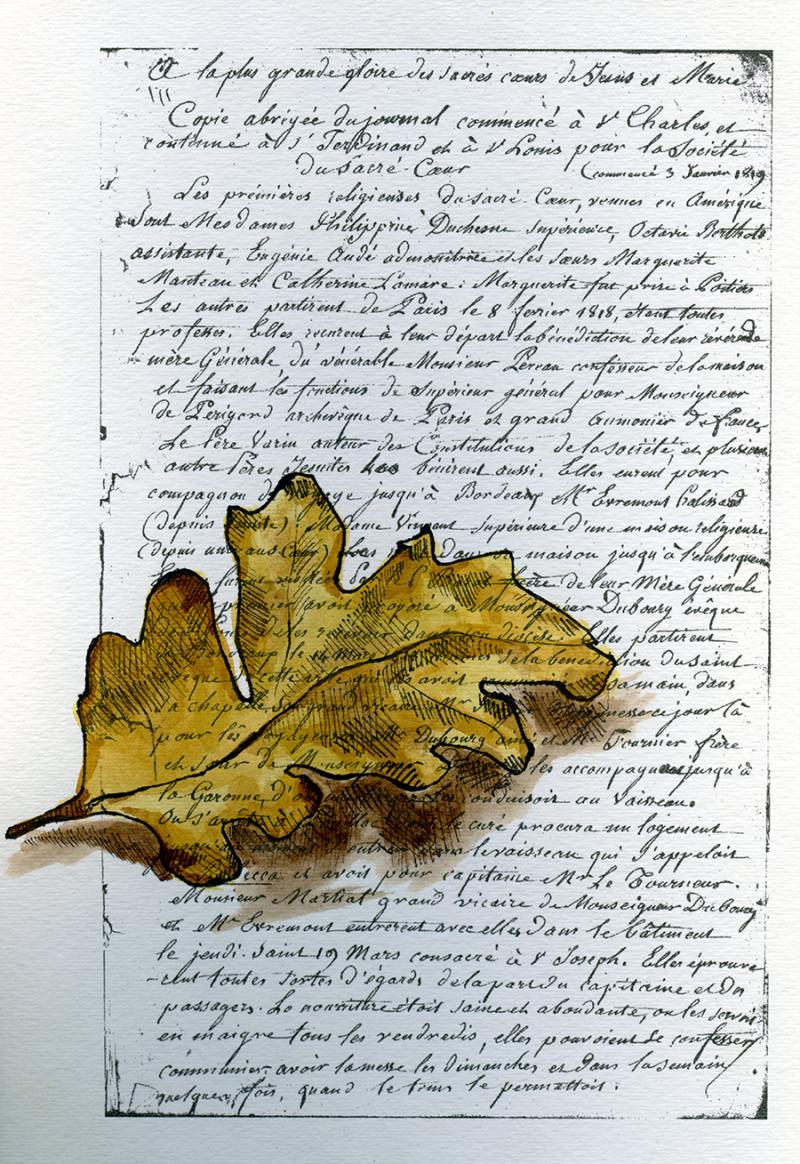 A la plus grande gloire des sacrés cœurs de Jesus et Marie
Copie abrigée du journal commencé à St Charles, et
continué à St Ferdinand et à St Louis pour la Société
du Sacré-Cœur (commencé 3 Janvier 1819
Les prémières religieuses du sacré-Cœur, venues en Amérique
sont Mesdames Philippine Duchesne supérieure, Octavie Berthold
assistante, Eugénie Audé admonitrice et les sœurs Marguerite
Manteau et Catherine Lamare: Marguerite fut prise à Poitiers
Les autres partirent de Paris le 8 fevrier 1818, étant toutes
professes. Elles reçurent à leur départ la bénédiction de leur révérende
mère Générale du vénérable Monsieur Perreau confesseur de la maison
et faisant les fonctions de Supérieur général pour Monseigneur
de Perigord archevêque de Paris et grand Aumonier de france,
Le Père Varin auteur des Constitutions de la société, et plusieurs
autre Pères Jesuites les bénirent aussi. Elles eurent pour
compagnon de jusqu'à Bordeaux Mr Evremont
(depuis Madame Vincent supérieure d'une maison religieuse
(depuis unie au Cœur) les Dans maison jusqu'à l'embarquement
furent frère de leur Mère Générale
premier avoit proposé à Monseigneur Dubourg évêque
les recevoir dans son diocèse. Elles partirent
de la benediction du saint
avoit sa main, dans
sa chapelle, messe ce jour là
pour les voyageuses. Mr Dubourg ainé et Mr Fournier frère
et sœur de Monseigneur les accompagna jusqu'à
la Garonne, d'où conduisoit au Vaisseau.
On s'arrêta le curé procura un logement
dans le vaisseau qui s'appeloit
Rebecca et avoit pour capitaine Mr Le Tourneur.
Monsieur Martial grand vicaire de Monseigneur Dubourg
et Mr Evremont entrerent avec elles dans le bâtiment
le jeudi-saint 19 Mars consacré à St Joseph. Elles éprouve-
-rent toutes sortes d'égards de la part du capitaine et des
passagers. La nourriture étoit saine et abondante, on les servoit
en maigre tous les vendredis, elles pouvoient se confesser,
communier, avoir la messe les Dimanches et dans la semaine
quelques fois, quand le tems le permettoit.